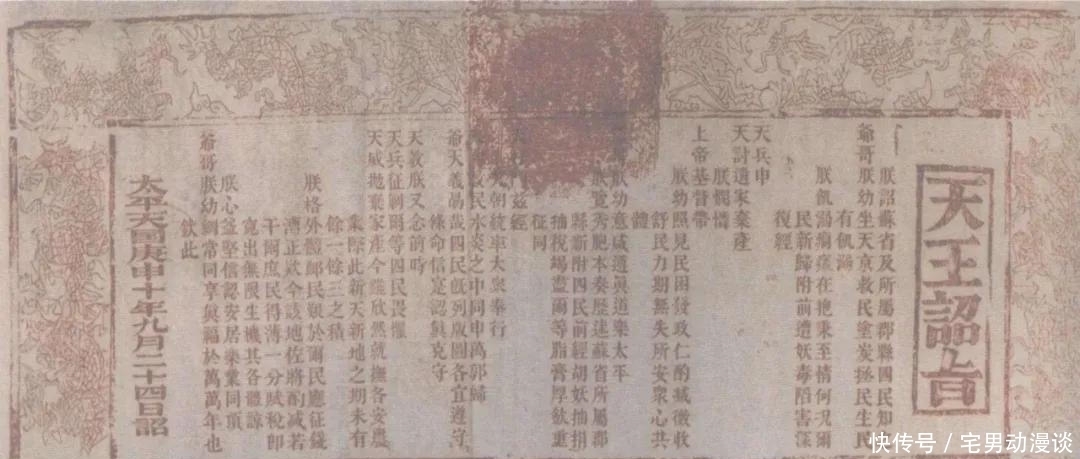 天王詔旨
朕詔蘇省及所屬郡縣四民知
爺哥朕幼坐天京救民塗炭拯民生民
有飢溺
朕飢溺痌瘝在抱秉至情何況爾
民新歸附前遭妖毒陷害深
復經
天兵申
天討遺家棄產
朕憫惜
上帝基督帶
朕幼照見民困發政仁酌減徵收
舒民力期無失所安衆心共
體
朕幼意咸遵眞道樂太平
朕覽秀胞本奏歷述蘇省所屬郡
縣新附四民前經胡妖抽捐
抽稅塲盡爾等脂膏厚斂重
征同
茲經
朝統率大衆奉行
民水炎之中同申萬郭歸
爺天義哉四民旣列版圖各宜遵守
條命信寔認眞克守
天教朕又念前時
天兵征剿爾等四民畏懼
天威拋棄家產今雖欣然就撫各安農
業際此新天新地之期未有
餘一餘三之積
朕格外體卹民艱於爾民應征錢
漕正欵今該地佐將酌减若
干爾庶民得薄一分賦稅卽
寬出無限生機其各體諒
朕心益堅信認安居樂業同頂
爺哥朕幼綱常同享眞福於萬萬年也
欽此
太平天囯庚申十年九月二十四日詔
快传号 / 宅男动漫谈